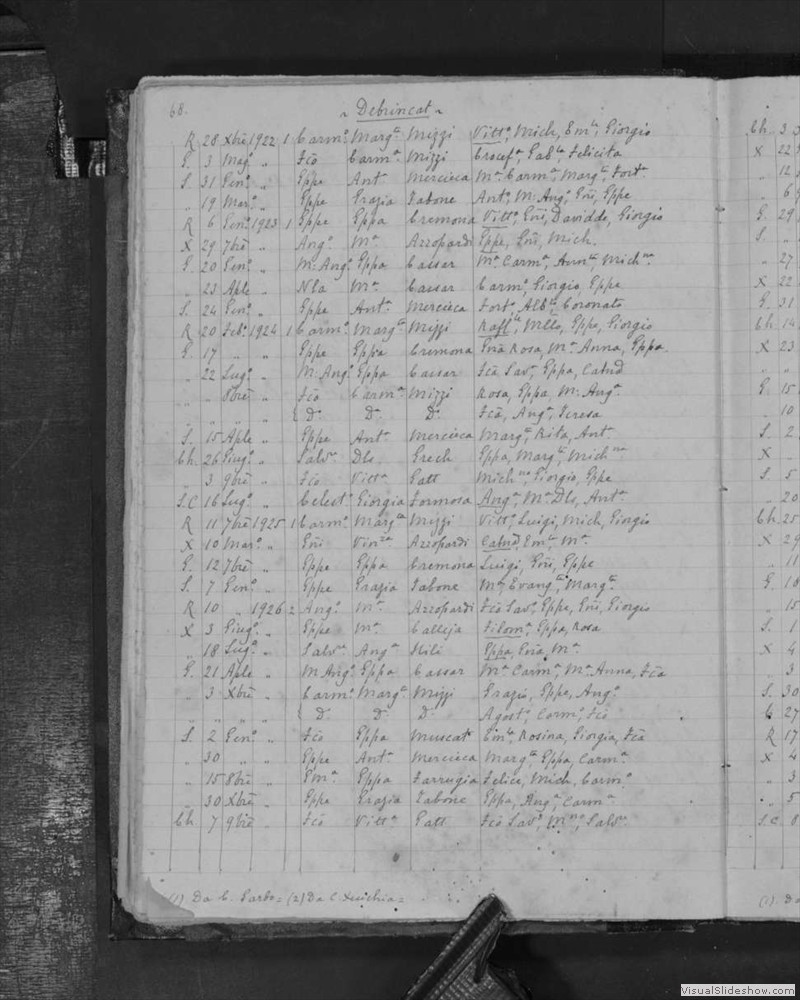 68. ~ Debrincat ~
R 28 Xbre 1922 1 Carm.o Marg.ta Mizzi Vitt.a, Mich, Em.le, Giorgio
G. 3 Mag. " Fco Carm.a Mizzi Crocef.a, Gab.le, Felicita
S. 31 Gen.o " Gppe Ant.a Mercieca M.a Carm.a, Marg.ta, Fort.a
" 19 Mar.o " Gppe Grazia Tabone Ant.o, M. Ang.o, Gni, Gppe
R 6 Gen.o 1923 1 Gppe Gppa Cremona Vitt.a, Gni, Davidde, Giorgio
X 29 7bre " Ang.o M.a Azzopardi Gppe, Gni, Mich.
G. 20 Gen.o " M. Ang.o Gppa Cassar M.a Carm.a, Annta, Mich.na
" 23 Aple " Nla M.a Cassar Carm.o, Giorgio, Gppe
S. 24 Gen.o " Gppe Ant.a Mercieca Fort.o, Alb.to, Coronato
R 20 Feb.o 1924 1 Carm.o Marg.ta Mizzi Raff.le, Mllo, Gppe, Giorgio
G. 17 " " Gppe Gppa Cremona Gnia Rosa, M.a Anna, Gppa.
" 22 Lug.o " M. Ang.o Gppa Cassar Fca Sav.a, Gppa, Catnd
" " 8bre " Fco Carm.a Mizzi Rosa, Gppa, M. Ang.a
" " " " { D.o D.o D.o Fca, Ang.a, Teresa
S. 15 Aple " Gppe Ant.a Mercieca Marg.ta, Rita, Ant.a
Ch. 26 Giug.o " Salv.e Dls Grech Gppa, Marg.ta, Mich.na
" 3 9bre " Fco Vitt.a Gatt Mich.no, Giorgio, Gppe
S.C 16 Lug.o " Celest.o Giorgia Formosa Ang.a, M.a Dls, Ant.a
R 11 7bre 1925 1 Carm.o Marg.ta Mizzi Vitt.o, Luigi, Mich, Giorgio
X 10 Mar.o " Gni Vin.za Azzopardi Catnd, Em.la, M.a
G. 12 7bre " Gppe Gppa Cremona Luigi, Gni, Gppe
S. 7 Gen.o " Gppe Grazia Tabone M.a, Evang.ta, Marg.ta
R 10 " 1926 2 Ang.o M.a Azzopardi Fco Sav.o, Gppe, Gni, Giorgio
X 3 Giug.o " Gppe M.a Calleja Filom.a, Gppa, Rosa
" 18 Lug.o " Salv.e Ang.a Hili Gppa, Gnia, M.a
G. 21 Aple " M. Ang.o Gppa Cassar M.a Carm.a, M.a Anna, Fca
" 3 Xbre " Carm.o Marg.ta Mizzi Grazio, Gppe, Ang.o
" " " " { D.o D.o D.o Agost.o, Carm.o, Fco
S. 2 Gen.o " Fco Gppa Muscat Em.la, Rosina, Giorgia, Fca
" 30 " " Gppe Ant.a Mercieca Marg.ta, Gppa, Carm.a
" 15 8bre " Em.a Gppa Farrugia Felice, Mich, Carm.o
" 30 Xbre " Gppe Grazia Tabone Gppa, Ang.a, Carm.a
Ch 7 9bre " Fco Vitt.a Gatt Fco Sav.o, M.no, Salv.e
(1) Da C. = (2) Da C. =
Ch. 3
X 22
" 12
" 6
G. 29
S. "
" 27
X 22
G. 31
Ch 14
X 23
" "
G. 15
" 10
S. 2
X
S. 5
" 20
Ch 25
X 29
" 11
G. 10
" 15
S. 1
X 4
" 3
S. 30
27
R 17
X 4
" 3
" 5
S.C 8
(1).
VisualSlideshow.com